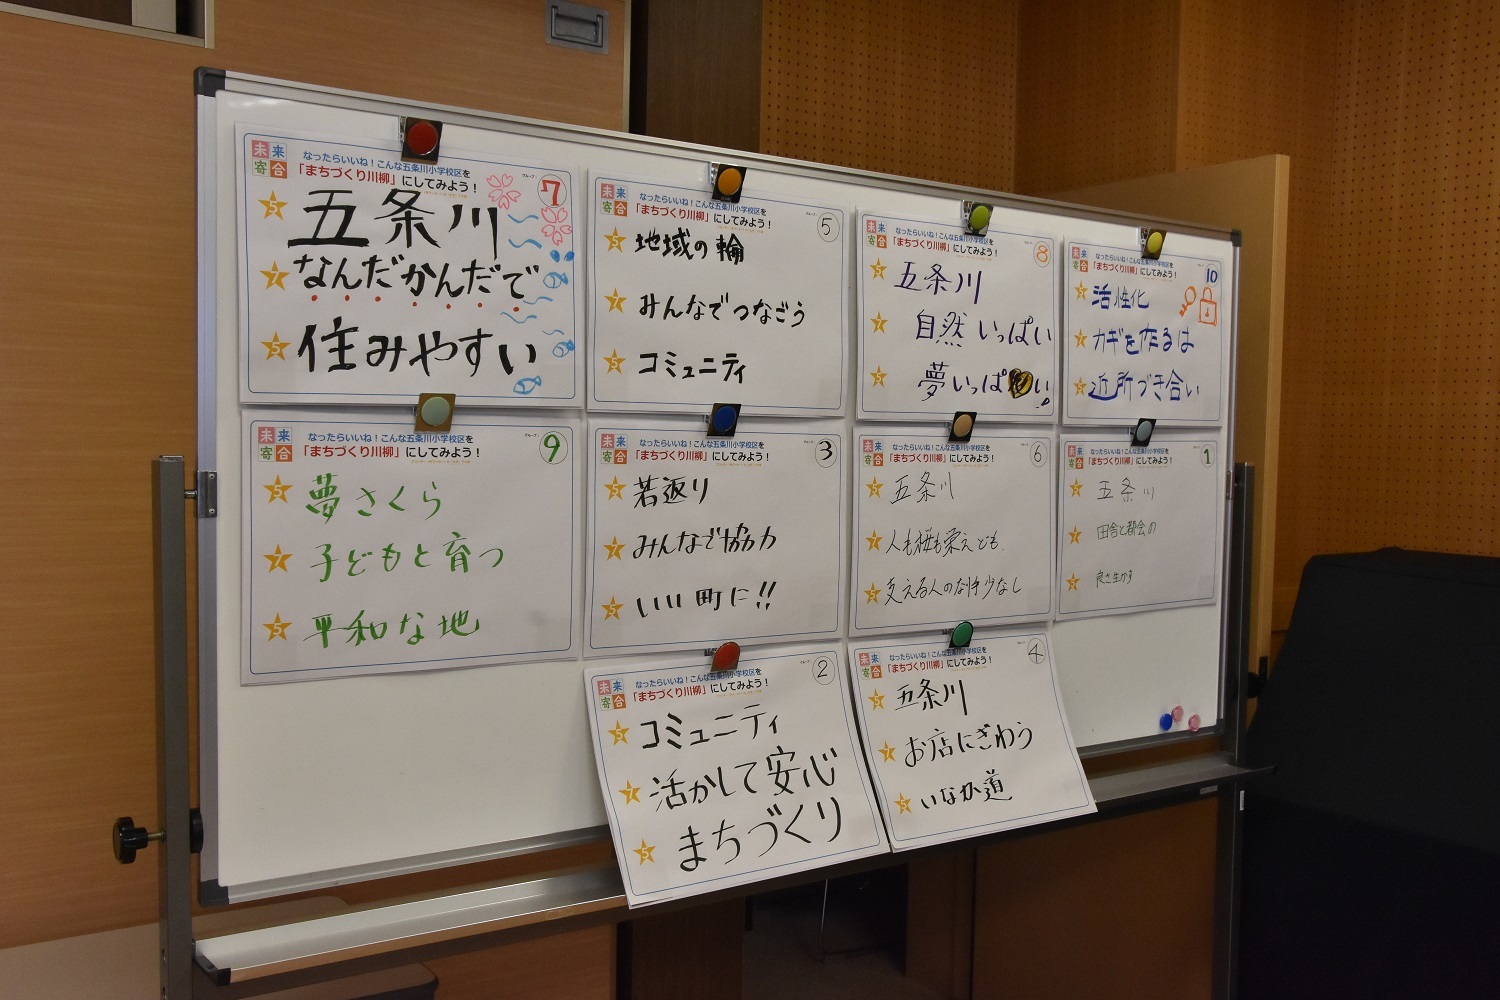 未来
寄合
なったらいいね！こんな五条川小学校区を
「まちづくり川柳」にしてみよう！
グループ
7
5 五条川
7 なんだかんだで
5 住みやすい
未来
寄合
なったらいいね！こんな五条川小学校区を
「まちづくり川柳」にしてみよう！
グループ
5
5 地域の輪
7 みんなでつなごう
5 コミュニティ
未来
寄合
なったらいいね！こんな五条川小学校区を
「まちづくり川柳」にしてみよう！
8
5 五条川
7 自然いっぱい
5 夢いっぱい!
未来
寄合
なったらいいね！こんな五条川小学校区を
「まちづくり川柳」にしてみよう！
10
5 活性化
7 カギを作るは
5 近所づき合い
未来
寄合
なったらいいね！こんな五条川小学校区を
「まちづくり川柳」にしてみよう！
グループ
9
5 夢さくら
7 子どもと育つ
5 平和な地
未来
寄合
なったらいいね！こんな五条川小学校区を
「まちづくり川柳」にしてみよう！
グループ
3
5 若返り
7 みんなで協力
5 いい町に!!
未来
寄合
なったらいいね！こんな五条川小学校区を
「まちづくり川柳」にしてみよう！
6
5 五条川
7 人も桜も栄えども
5 支える人の少なし
未来
寄合
なったらいいね！こんな五条川小学校区を
「まちづくり川柳」にしてみよう！
1
5 五条川
7 田舎と都会の
5 良さ生かす
未来
寄合
なったらいいね！こんな五条川小学校区を
「まちづくり川柳」にしてみよう！
グループ
2
5 コミュニティ
7 活かして安心
5 まちづくり
未来
寄合
なったらいいね！こんな五条川小学校区を
「まちづくり川柳」にしてみよう！
4
5 五条川
7 お店にぎわう
5 いなか道